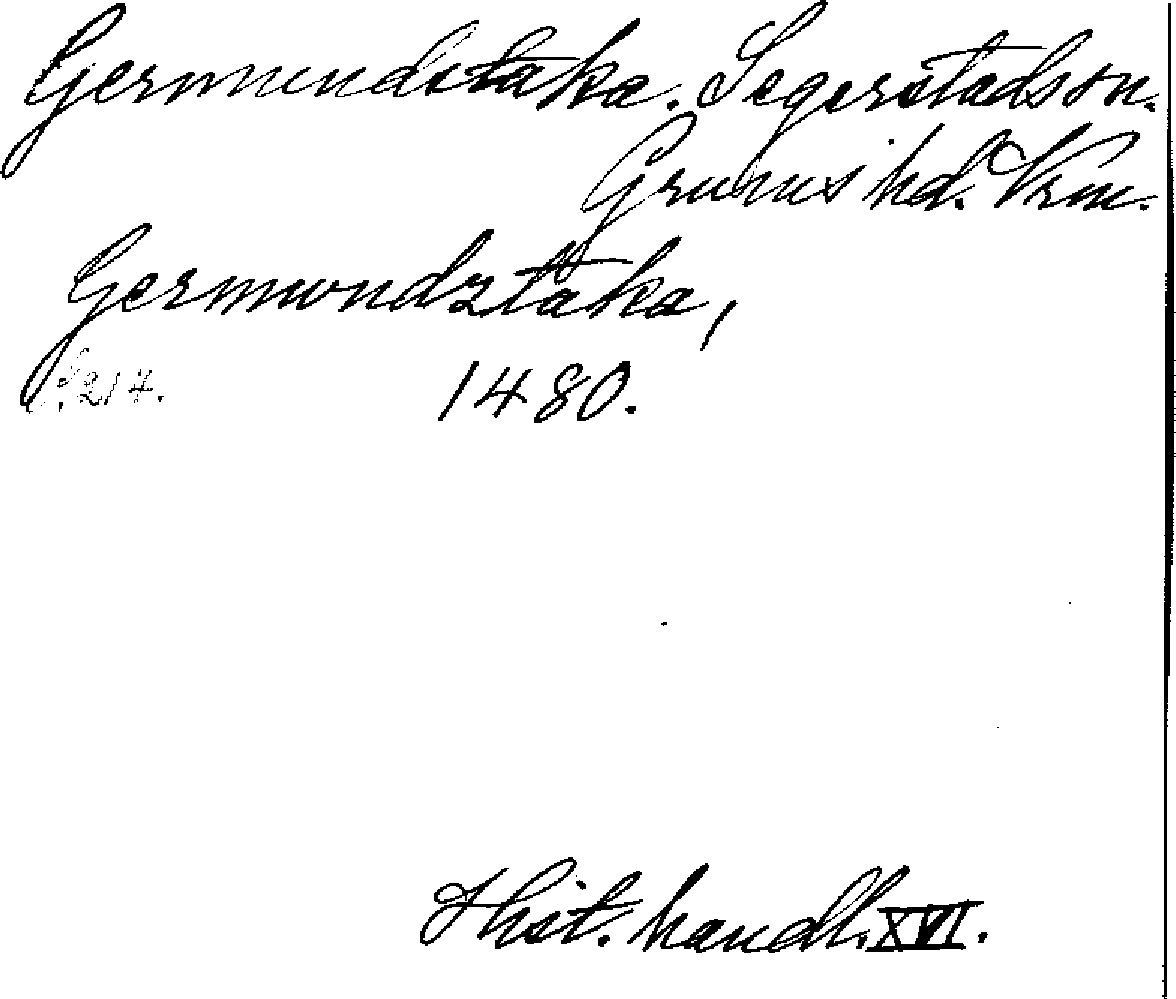 Germundstaka. Segerstadssn.
Grums hd. Vrm.
Germwndztaka,
S. 214. 1480.
Hist. handl. XVI.